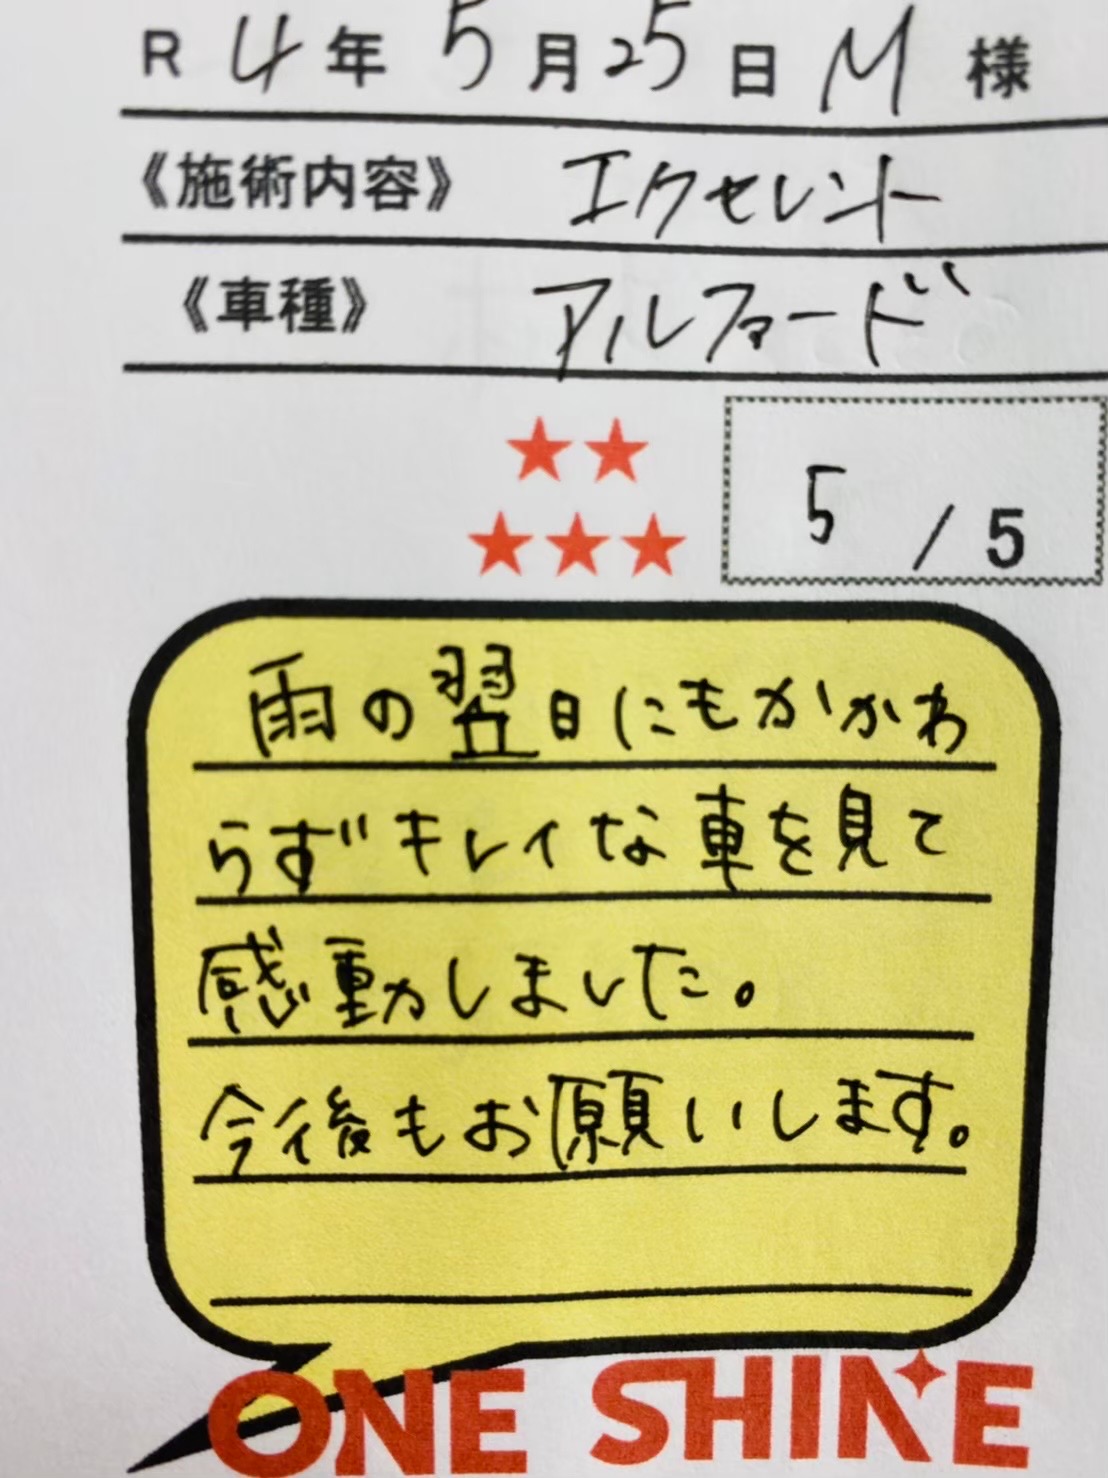 R 4年 5月25日 M 様
《施術内容》 エクセレント
《車種》 アルファード
★★
★★★
5 / 5
雨の翌日にもかかわ
らずキレイな車を見て
感動しました。
今後もお願いします。
ONE SHINE